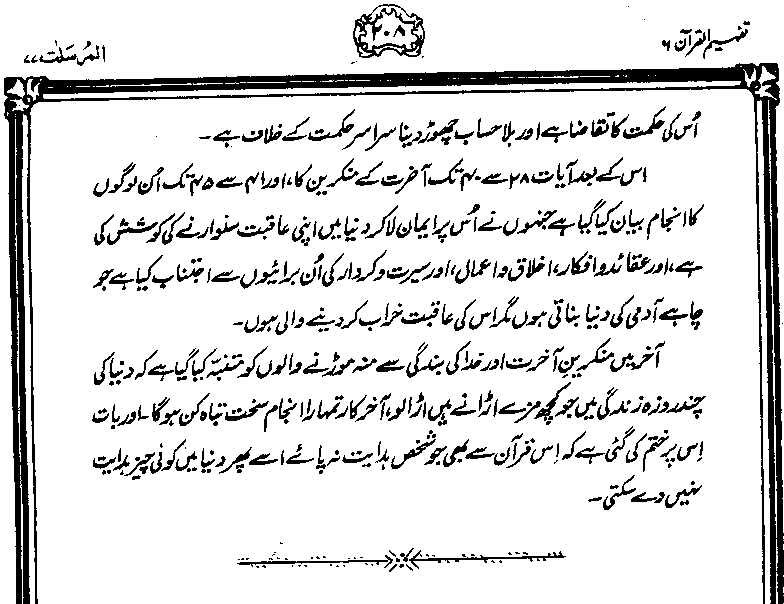 تفہیم القرآن ۶
۲۰۸
المُرسَلٰت ۷۷
اُس کی حکمت کا تقاضا ہے اور بلا حساب چھوڑ دینا سراسر حکمت کے خلاف ہے۔
اس کے بعد آیات ۲۸ سے ۴۰ تک آخرت کے منکرین کا، اور ۴۱ سے ۴۵ تک اُن لوگوں
کا انجام بیان کیا گیا ہے جنہوں نے اُس پر ایمان لا کر دنیا میں اپنی عاقبت سنوارنے کی کوشش کی
ہے، اور عقائد و افکار، اخلاق و اعمال، اور سیرت و کردار کی اُن برائیوں سے اجتناب کیا ہے جو
چاہے آدمی کی دنیا بناتی ہوں مگر اس کی عاقبت خراب کر دینے والی ہوں۔
آخر میں منکرینِ آخرت اور خدا کی بندگی سے منہ موڑنے والوں کو متنبّہ کیا گیا ہے کہ دنیا کی
چند روزہ زندگی میں جو کچھ مزے اڑانے ہیں اڑا لو، آخر کار تمہارا انجام سخت تباہ کن ہوگا۔ اور بات
اِس پر ختم کی گئی ہے کہ اِس قرآن سے بھی جو شخص ہدایت نہ پائے اسے پھر دنیا میں کوئی چیز ہدایت
نہیں دے سکتی۔